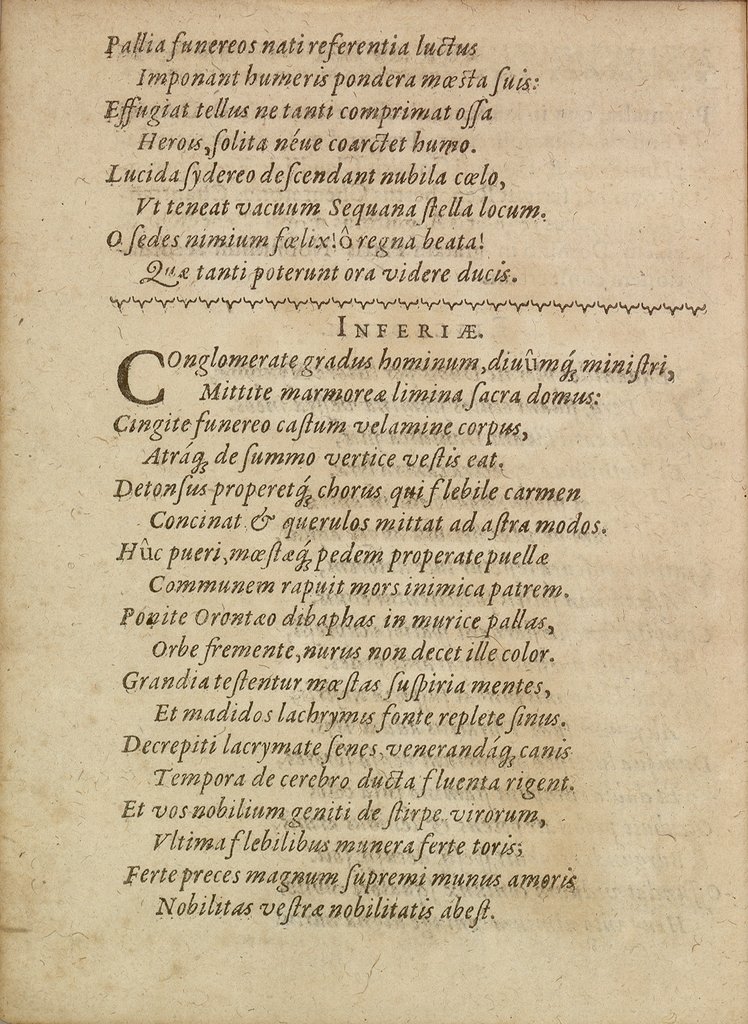 Pallia funereos nati referentia luctus
Imponant humeris pondera mœsta suis:
Effugiat tellus ne tanti comprimat ossa
Herois, solita néue coarctet humo.
Lucida sydereo descendant nubila cœlo,
Vt teneat vacuum Sequana stella locum.
O sedes nimium fœlix! ô regna beata!
Quæ tanti poterunt ora videre ducis.
INFERIÆ.
COnglomerate gradus hominum, diuûmq́; ministri,
Mittite marmoreæ limina sacra domus:
Cingite funereo castum velamine corpus,
Atráq; de summo vertice vestis eat.
Detonsus properetq́; chorus qui flebile carmen
Concinat & querulos mittat ad astra modos.
Hûc pueri, mœstæq́; pedem properate puellæ
Communem rapuit mors inimica patrem.
Ponite Orontæo dibaphas in murice pallas,
Orbe fremente, nurus non decet ille color.
Grandia testentur mœstas suspiria mentes,
Et madidos lachrymis fonte replete sinus.
Decrepiti lacrymate senes, venerandáq; canis
Tempora de cerebro ducta fluenta rigent.
Et vos nobilium geniti de stirpe virorum,
Vltima flebilibus munera ferte toris;
Ferte preces magnum supremi munus amoris
Nobilitas vestræ nobilitatis abest.